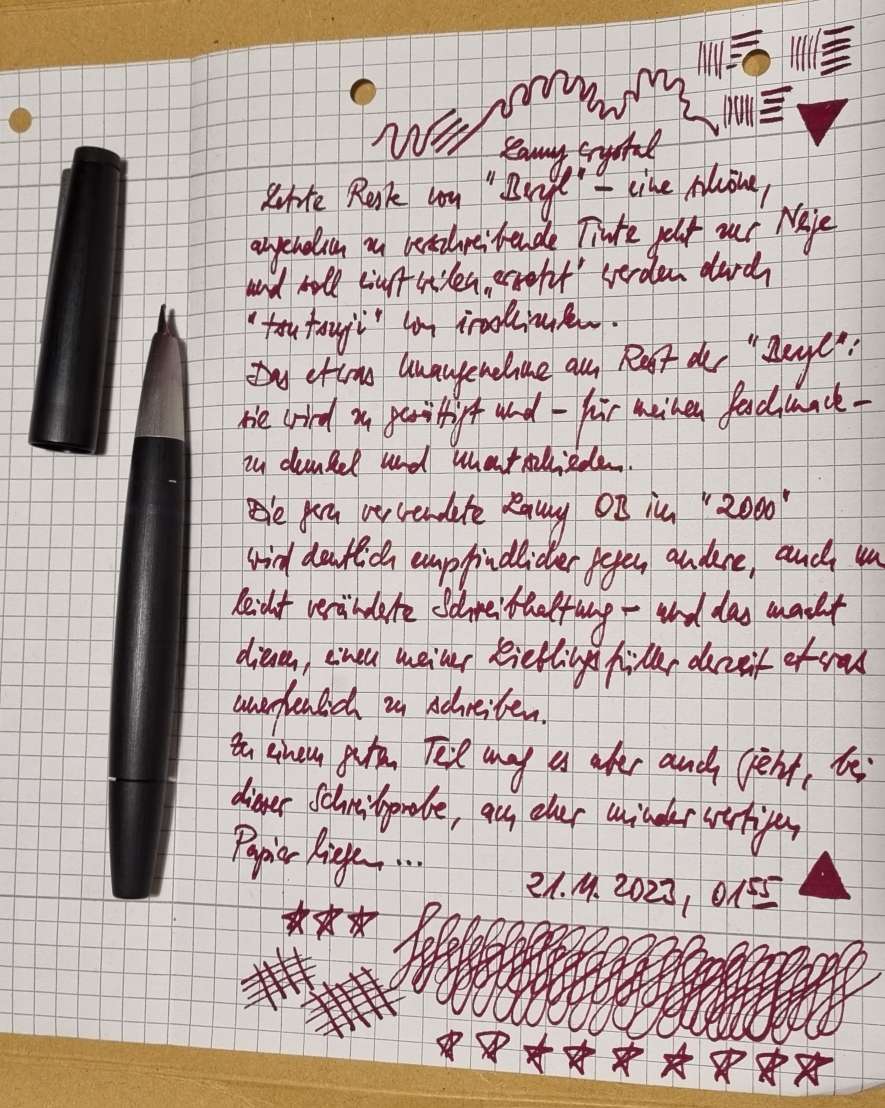 Lamy Crystal
Letzte Reste von "Beryl" – eine schöne,
angenehm zu verschreibende Tinte geht zur Neije
und soll einstweilen „ersetzt" werden durch
"tsutsuji" von iroshizuku.
Das etwas Unangenehme am Rest der "Beryl":
sie wird zu gesättigt und – für meinen Geschmack –
zu dunkel und unentschieden.
Die gern verwendete Lamy OB im "2000"
wird deutlich empfindlicher gegen andere, auch nur
leicht veränderte Schreibhaltung – und das macht
diesen, einen meiner Lieblingsfüller derzeit etwas
unerfreulich zu schreiben.
Zu einem guten Teil mag es aber auch jetzt, bei
dieser Schreibprobe, am eher minderwertigen
Papier liegen...
21.11.2023, 01⁵⁵